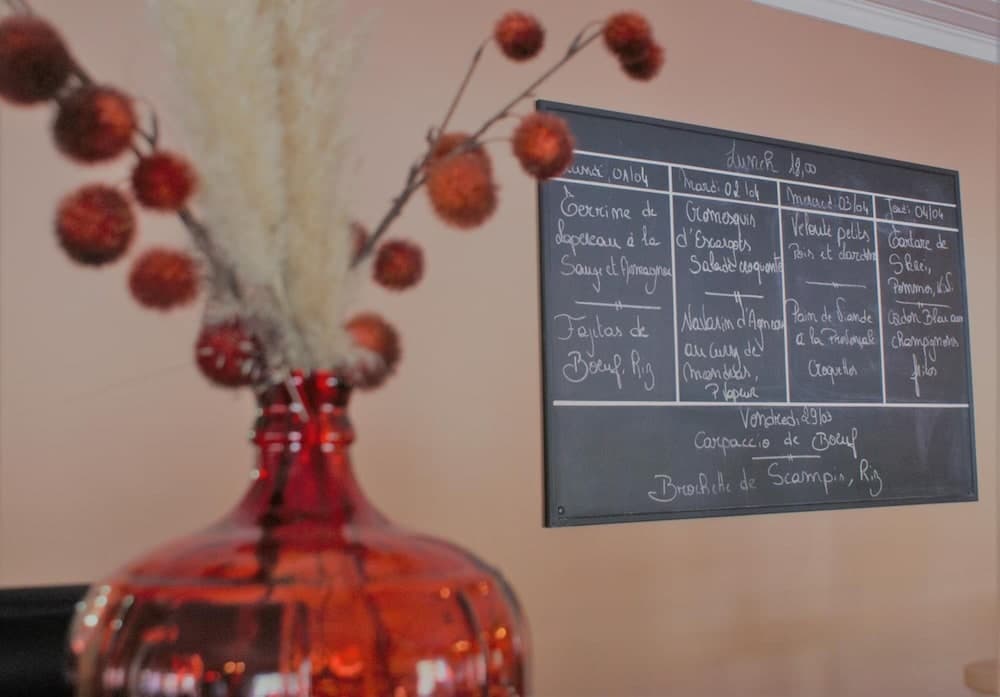 Lunch 18,00
Lundi 01/04
Terrine de
Lapereau à la
Sauge et Armagnac
Fajitas de
Boeuf, Riz
Mardi 02/04
Cromesquis
d'Escargots
Salade croquante
Navarin d'Agneau
au curry de
Madras,
P Vapeur
Mercredi 03/04
Velouté petits
Pois et
Pain de Viande
à la Provençale
Croquettes
Jeudi 04/04
Tartare de
Pommes,
Cordon Bleu aux
champignons
frites
Vendredi 29/03
Carpaccio de Boeuf
Brochette de Scampis, Riz